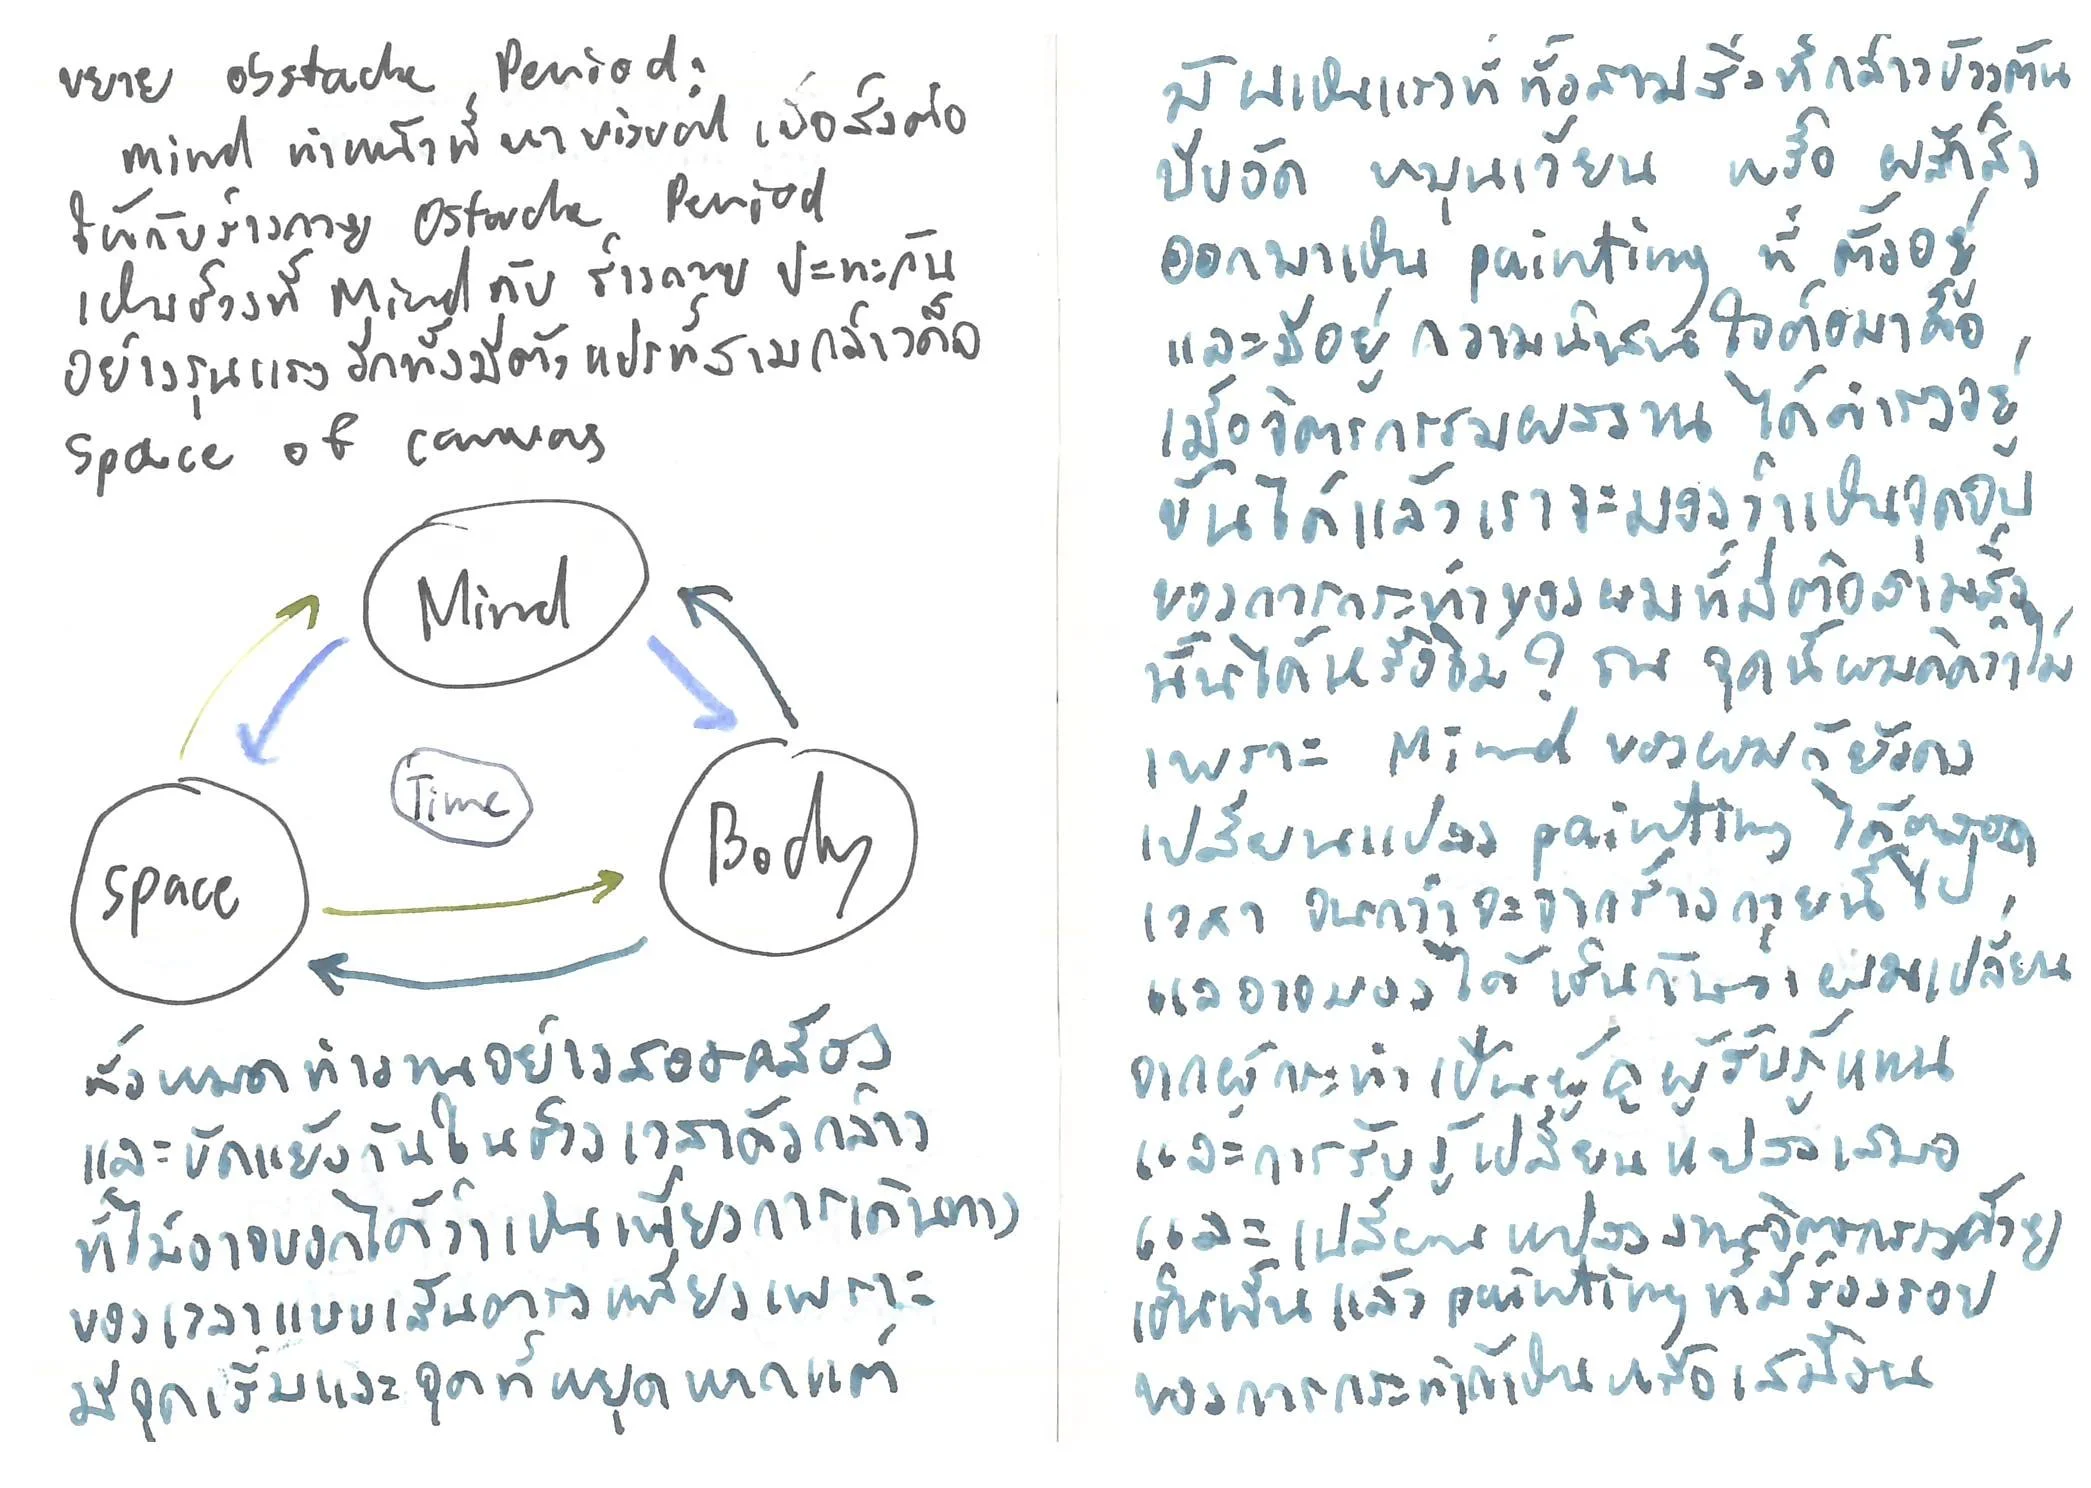 ขยาย Obstacle Period:
mind ทำหน้าที่ หา เพื่อส่งต่อ
ให้กับร่างกาย Obstacle Period
เป็นช่วงที่ Mind กับ ร่างกาย ปะทะกัน
อย่างรุนแรง อีกทั้งมีตัวแปรที่สามกล่าวคือ
Space of canvas
Mind
Time
Space
Body
ทั้งหมดทำงานอย่างสอดคล้อง
และขัดแย้งกันในช่วงเวลาดังกล่าว
ที่ไม่อาจบอกได้ว่าเป็นเพียงการเดินทาง
ของเวลาแบบเส้นตรงเพียงเพราะ
มีจุดเริ่มและจุดที่หยุดหากแต่
มันเป็นแรงที่ทั้งสามสิ่งที่กล่าวข้างต้น
บีบอัด หมุนเวียน หรือ ผลักสิ่ง
ออกมาเป็น painting ที่ ตั้งอยู่
และมีอยู่ ความน่าสนใจต่อมาคือ,
เมื่อจิตรกรรมผลงาน ได้ดำรงอยู่
ขึ้นได้แล้วเราจะมองว่าเป็นจุดจบ
ของการกระทำของผมที่มีต่อสามสิ่ง
นั้นได้หรือไม่? ณ จุดนี้ผมคิดว่าไม่
เพราะ Mind ของผมก็ยังคง
เปลี่ยนแปลง painting ได้ตลอด
เวลา จนกว่าจะจากร่างกายนี้ไป,
แลอาจมองได้เช่นกันว่าผมเปลี่ยน
จากผู้กระทำเป็นผู้ดูผู้รับรู้แทน
และการรับรู้เปลี่ยนแปลงเสมอ
และเปลี่ยนแปลงงานจิตรกรรมด้วย
เช่นนั้นแล้ว painting ที่มีร่องรอย
ของการกระทำก็เป็นหรือเสมือน